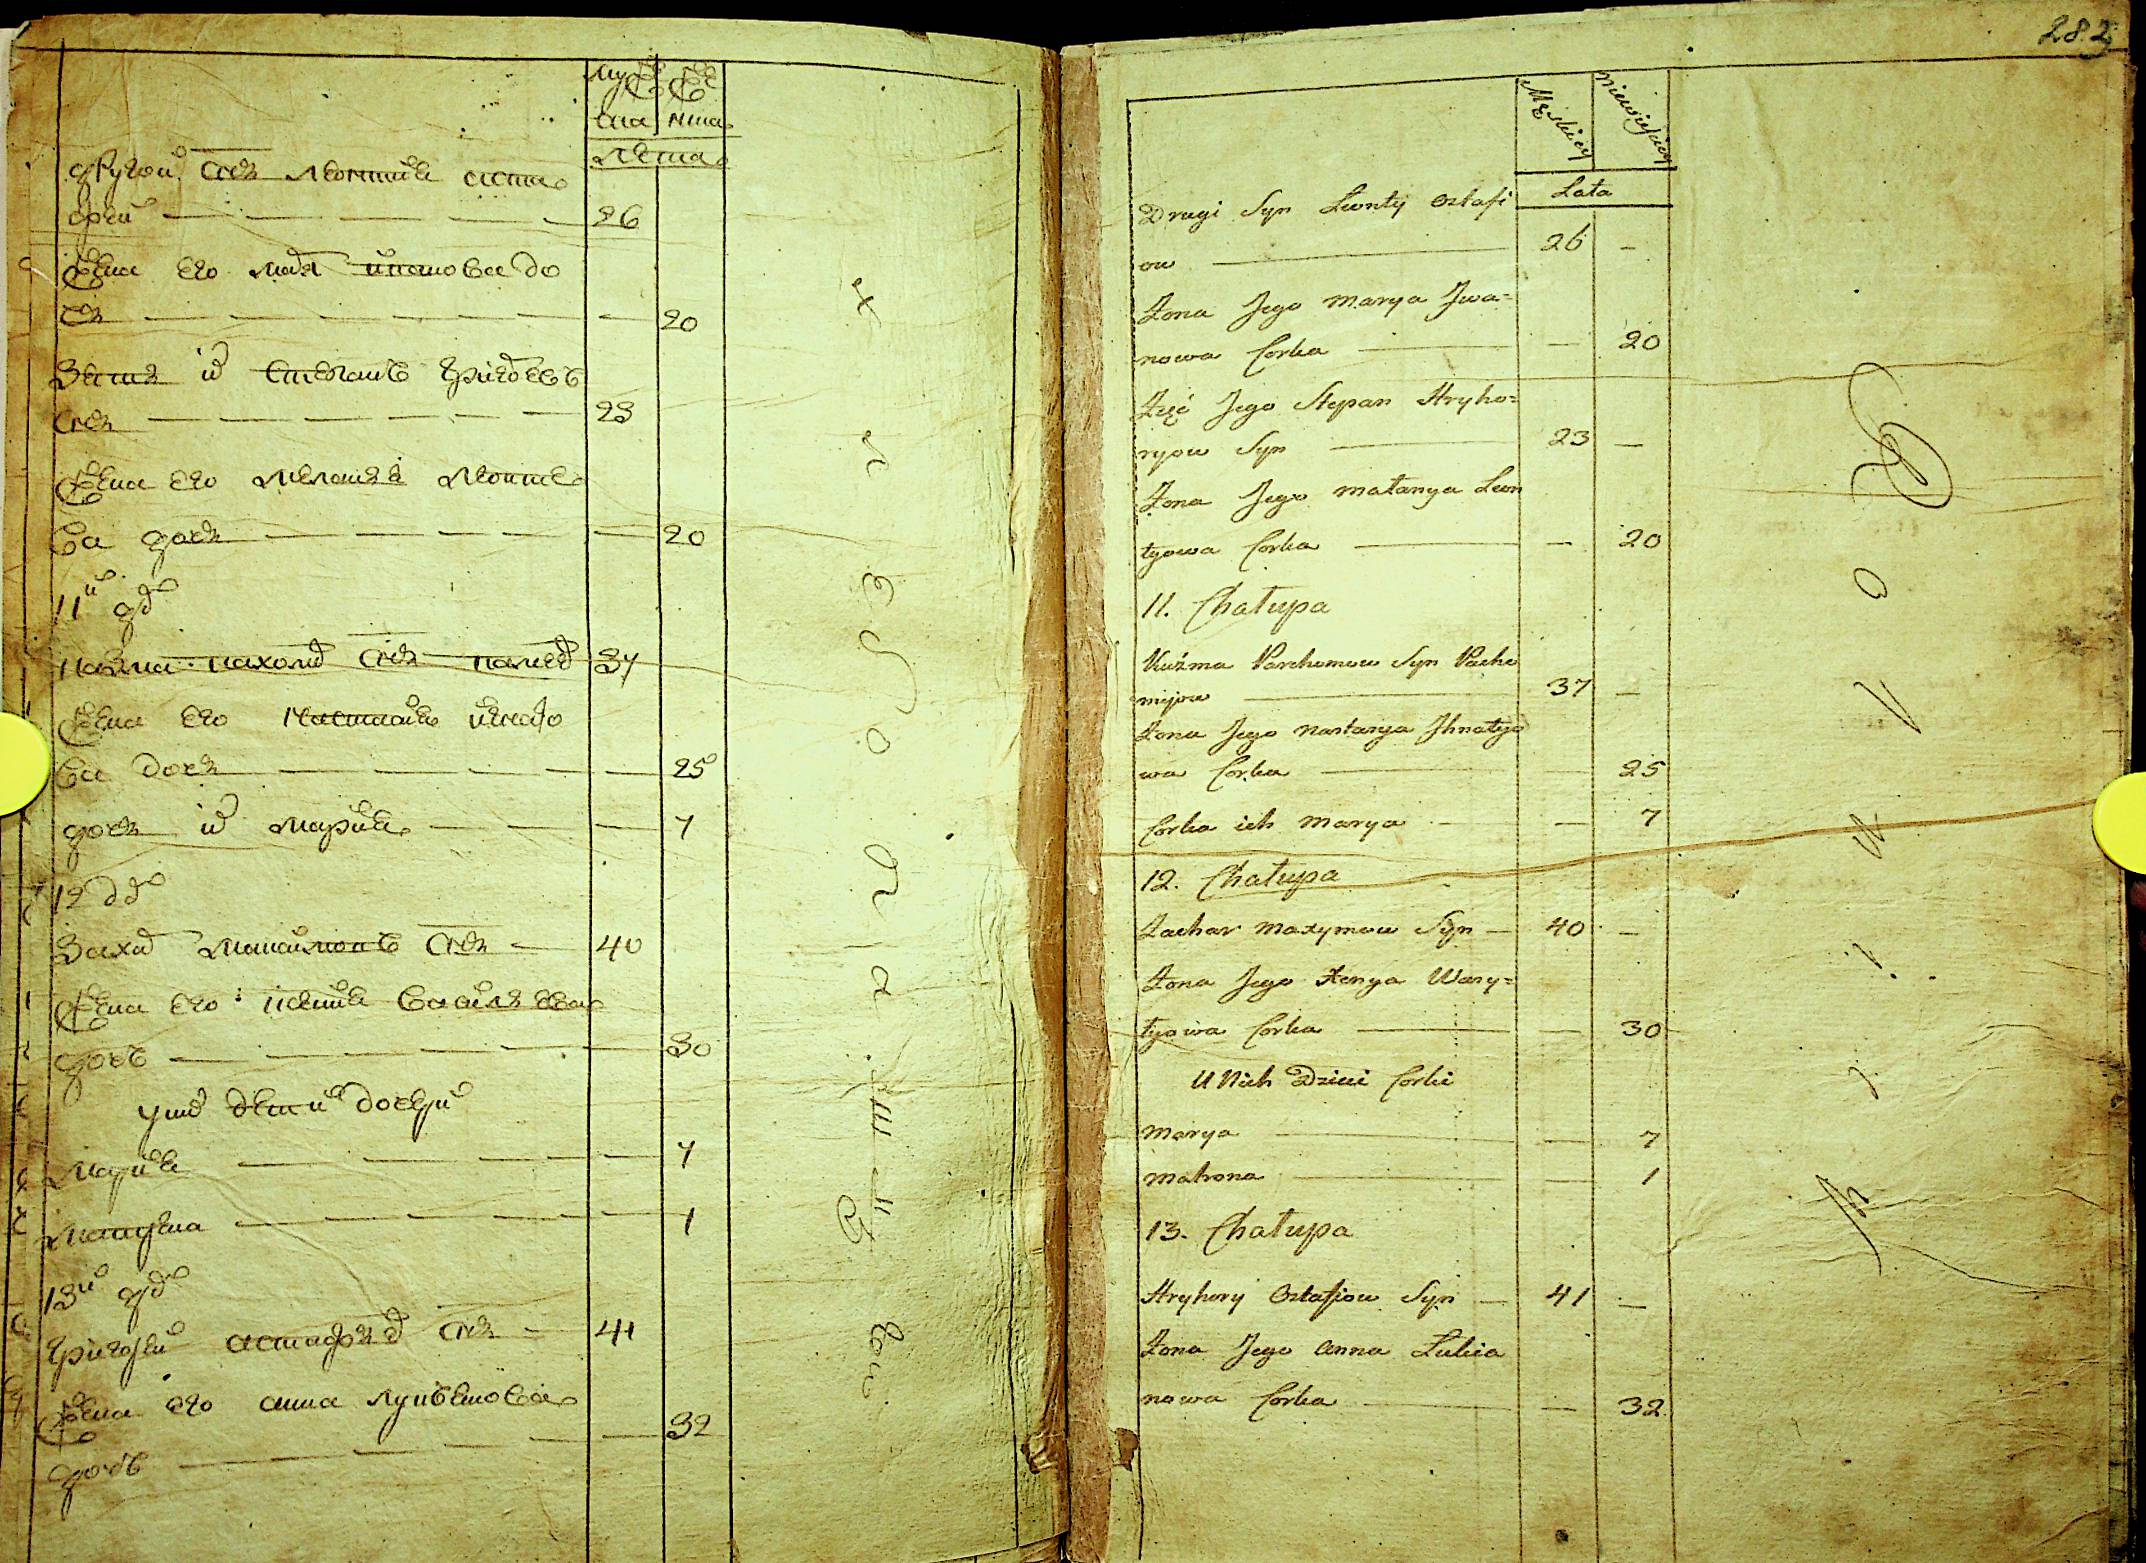 другой снъ леонтий аста
фей — 26
жена его маря иванова до
чъ — 20
Зять их степанъ григоревъ
снъ — 23
жена его меланья леонте
ва дочь — 20
11й дво
37
жена его настасия игнато
ва дочь — 25
дочь их мария — 7
12 дво
Захар снъ — 40
жена его василева
дочь — 30
у них дети дочери
мария — 7
матрена — 1
13й дво
григорей астафев снъ — 41
жена его анна
дочь — 32
282
Męskiey
Niewieskiey
Lata
Drugi Syn Leonty Ostafi
ow — 26 —
Zona Jego Marya Jwa=
nowa Corka — — 20
Zięć Jego Stepan Hryho=
ryow Syn — 23 —
Zona Jego Małanya Leon
tyowa Corka — — 20
11. Chałupa
Kuźma Parchomow Syn Pacho
mijow — 37 —
Zona Jego Nastasya Jhnatyo
wa Corka — — 25
Corka ich Marya — — 7
12. Chałupa
Zachar Maxymow Syn — 40 —
Zona Jego Xenya Wasy=
lyowa Corka — — 30
U Nich Dzieci Corki
Marya — — 7
Matrona — — 1
13. Chałupa
Hryhory Ostafiow Syn — 41 —
Zona Jego Anna Lukia
nowa Corka — — 32